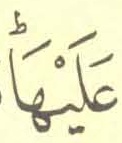 عَلَيْهَاؕ